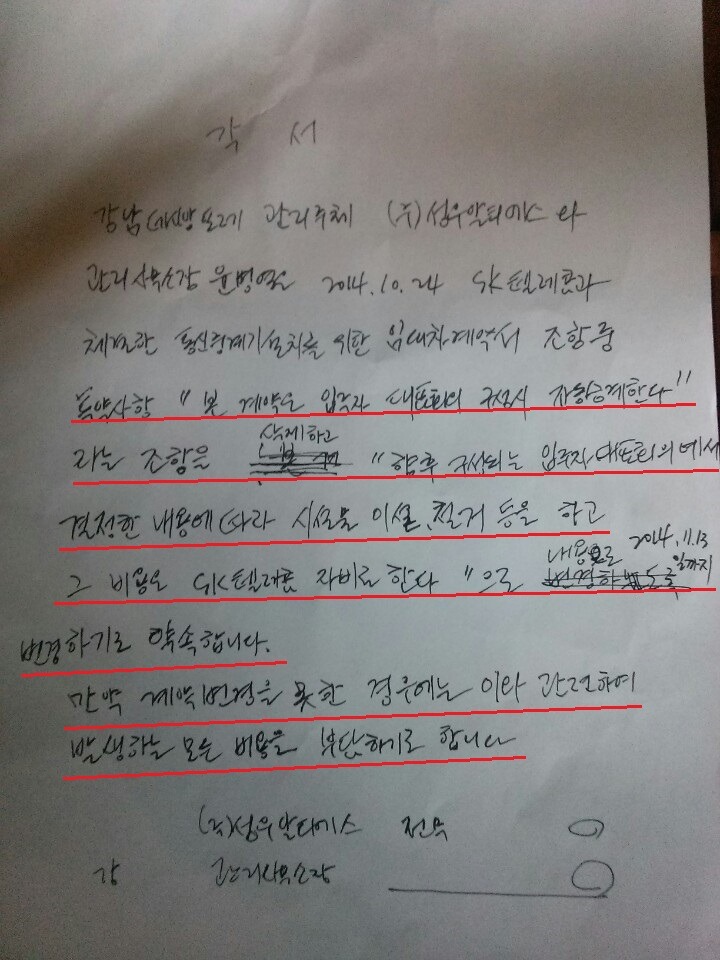 각 서
강남 관리주체 (주)성우알티에스와
관리사무소장 윤병열은 2014.10.24 SK텔레콤과
체결한 통신중계기설치를 위한 임대차계약서 조항중
특약사항 "본 계약은 입주자 대표회의 구성시 자동승계한다"
라는 조항을 삭제하고 "향후 구성되는 입주자대표회의에서
결정한 내용에 따라 시설물 이설, 철거 등을 하고
그 비용은 SK텔레콤 자비로 한다"으로 내용으로 2014.11.13일까지
변경하기로 약속합니다.
만약 계약변경을 못한 경우에는 이와 관련하여
발생하는 모든 비용을 부담하기로 합니다
(주)성우알티에스 전무
강 관리사무소장